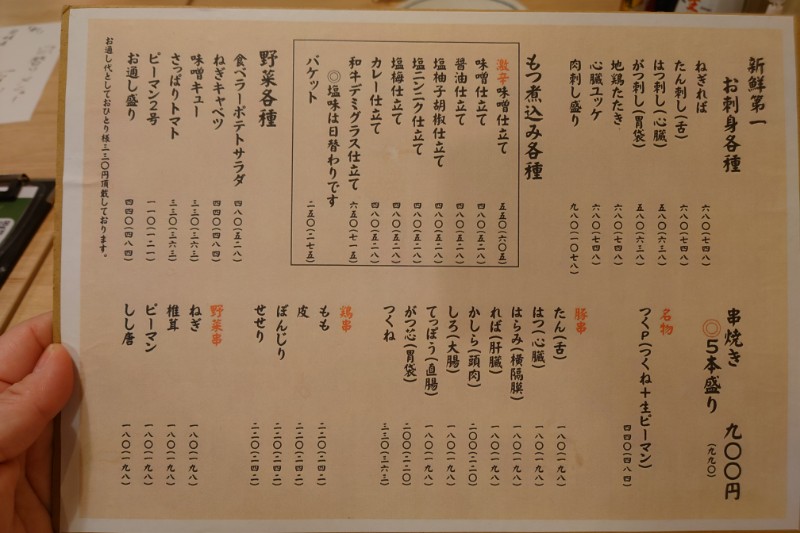 新鮮第一
お刺身各種
ねぎればー 六八〇(七四八)
たん刺し(舌) 六八〇(七四八)
はつ刺し(心臓) 五八〇(六三八)
がつ刺し(胃袋) 五八〇(六三八)
地鶏たたき 六八〇(七四八)
心臓ユッケ 六八〇(七四八)
肉刺し盛り 九八〇(一〇七八)
もつ煮込み各種
激辛味噌仕立て 五五〇(六〇五)
味噌仕立て 四八〇(五二八)
醤油仕立て 四八〇(五二八)
塩柚子胡椒仕立て 四八〇(五二八)
塩ニンニク仕立て 四八〇(五二八)
塩梅仕立て 四八〇(五二八)
カレー仕立て 四八〇(五二八)
和牛デミグラス仕立て 六五〇(七一五)
◎塩味は日替わりです
バケット 二五〇(二七五)
野菜各種
食べラーポテトサラダ 四八〇(五二八)
ねぎキャベツ 四四〇(四八四)
味噌キュー 三三〇(三六三)
さっぱりトマト 三三〇(三六三)
ピーマン2号 一一〇(一二一)
お通し盛り 四四〇(四八四)
お通し代としておひとり様三三〇円頂戴しております。
串焼き
◎5本盛り 九〇〇円
(九九〇)
名物
つくP(つくね+生ピーマン) 四四〇(四八四)
豚串
たん(舌) 一八〇(一九八)
はつ(心臓) 一八〇(一九八)
はらみ(横隔膜) 一八〇(一九八)
ればー(肝臓) 一八〇(一九八)
かしら(頭肉) 二〇〇(二二〇)
しろ(大腸) 一八〇(一九八)
てっぽう(直腸) 一八〇(一九八)
がつ芯(胃袋) 二〇〇(二二〇)
つくね 三三〇(三六三)
鶏串
もも 二二〇(二四二)
皮 二二〇(二四二)
ぼんじり 二二〇(二四二)
せせり 二二〇(二四二)
野菜串
ねぎ 一八〇(一九八)
椎茸 一八〇(一九八)
ピーマン 一八〇(一九八)
しし唐 一八〇(一九八)